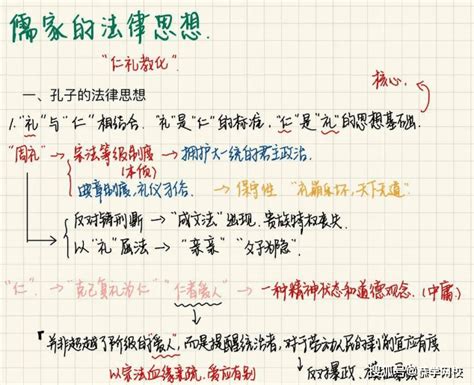 儒家的法律思想.
"仁礼教化".
一、孔子的法律思想
核心.
1."礼"与"仁"相结合. "礼"是"仁"的标准, "仁"是"礼"的思想基础.
"周礼" → 宗法等级制度 → 拥护大一统的君主政治.
(本质)
典章制度,礼仪习俗 → 保守性 "礼崩乐坏,天下无道"
反对铸刑鼎 → "成文法"出现,贵族特权丧失
以"礼"属法 → "亲亲" "父子为隐".
"仁" → "克己复礼为仁" "仁者爱人" → 一种精神状态和道德观念.(中庸)
"并非超越了阶级的"爱人",而是提醒统治者,对于劳动人民的剥削宜应有度
以宗法血缘来疏,爱应有别 反对暴政
搜狐号@薛学网校